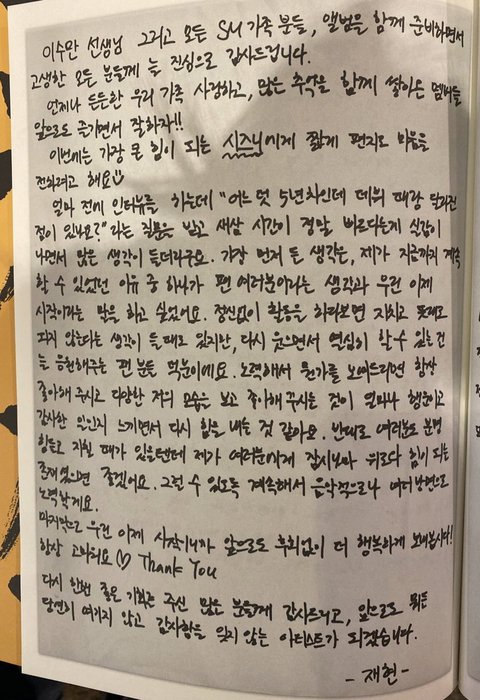 이수만 선생님 그리고 모든 SM 가족 분들, 앨범을 함께 준비하면서
고생한 모든 분들께 늘 진심으로 감사드립니다.
언제나 든든한 우리 가족 사랑하고, 많은 추억을 함께 쌓아온 멤버들
앞으로도 즐기면서 잘하자!!
이번에는 가장 큰 힘이 되는 시즈니에게 짧게 편지로 마음을
전하려고 해요☺
얼마 전에 인터뷰를 하는데 "어느 덧 5년차인데 데뷔 때랑 달라진
점이 있나요?" 라는 질문을 받고 새삼 시간이 정말 빠르다는게 실감이
나면서 많은 생각이 들더라구요. 가장 먼저 든 생각은, 제가 지금까지 계속
할 수 있었던 이유 중 하나가 팬 여러분이라는 생각과 우린 이제
시작이라는 말을 하고 싶었어요. 정신없이 활동을 하다보면 지치고 뜻대로
되지 않는다는 생각이 들 때도 있지만, 다시 웃으면서 열심히 할 수 있는 건
늘 응원해주는 팬 분들 덕분이에요. 노력해서 뭔가를 보여드리면 항상
좋아해 주시고 다양한 저의 모습을 보고 좋아해 주시는 것이 얼마나 행운이고
감사한 일인지 느끼면서 다시 힘을 내는 것 같아요. 반대로 여러분도 분명
힘들고 지칠 때가 있을텐데 제가 여러분에게 잠시나마 위로와 힘이 되는
존재였으면 좋겠어요. 그럴 수 있도록 계속해서 음악적으로나 여러 방면으로
노력할게요.
마지막으로 우린 이제 시작이니까 앞으로도 후회없이 더 행복하게 보내봅시다!
항상 고마워요♡ Thank You
다시 한번 좋은 기회를 주신 많은 분들께 감사드리고, 앞으로도 뭐든
당연히 여기지 않고 감사함을 잊지 않는 아티스트가 되겠습니다.
- 재현 -